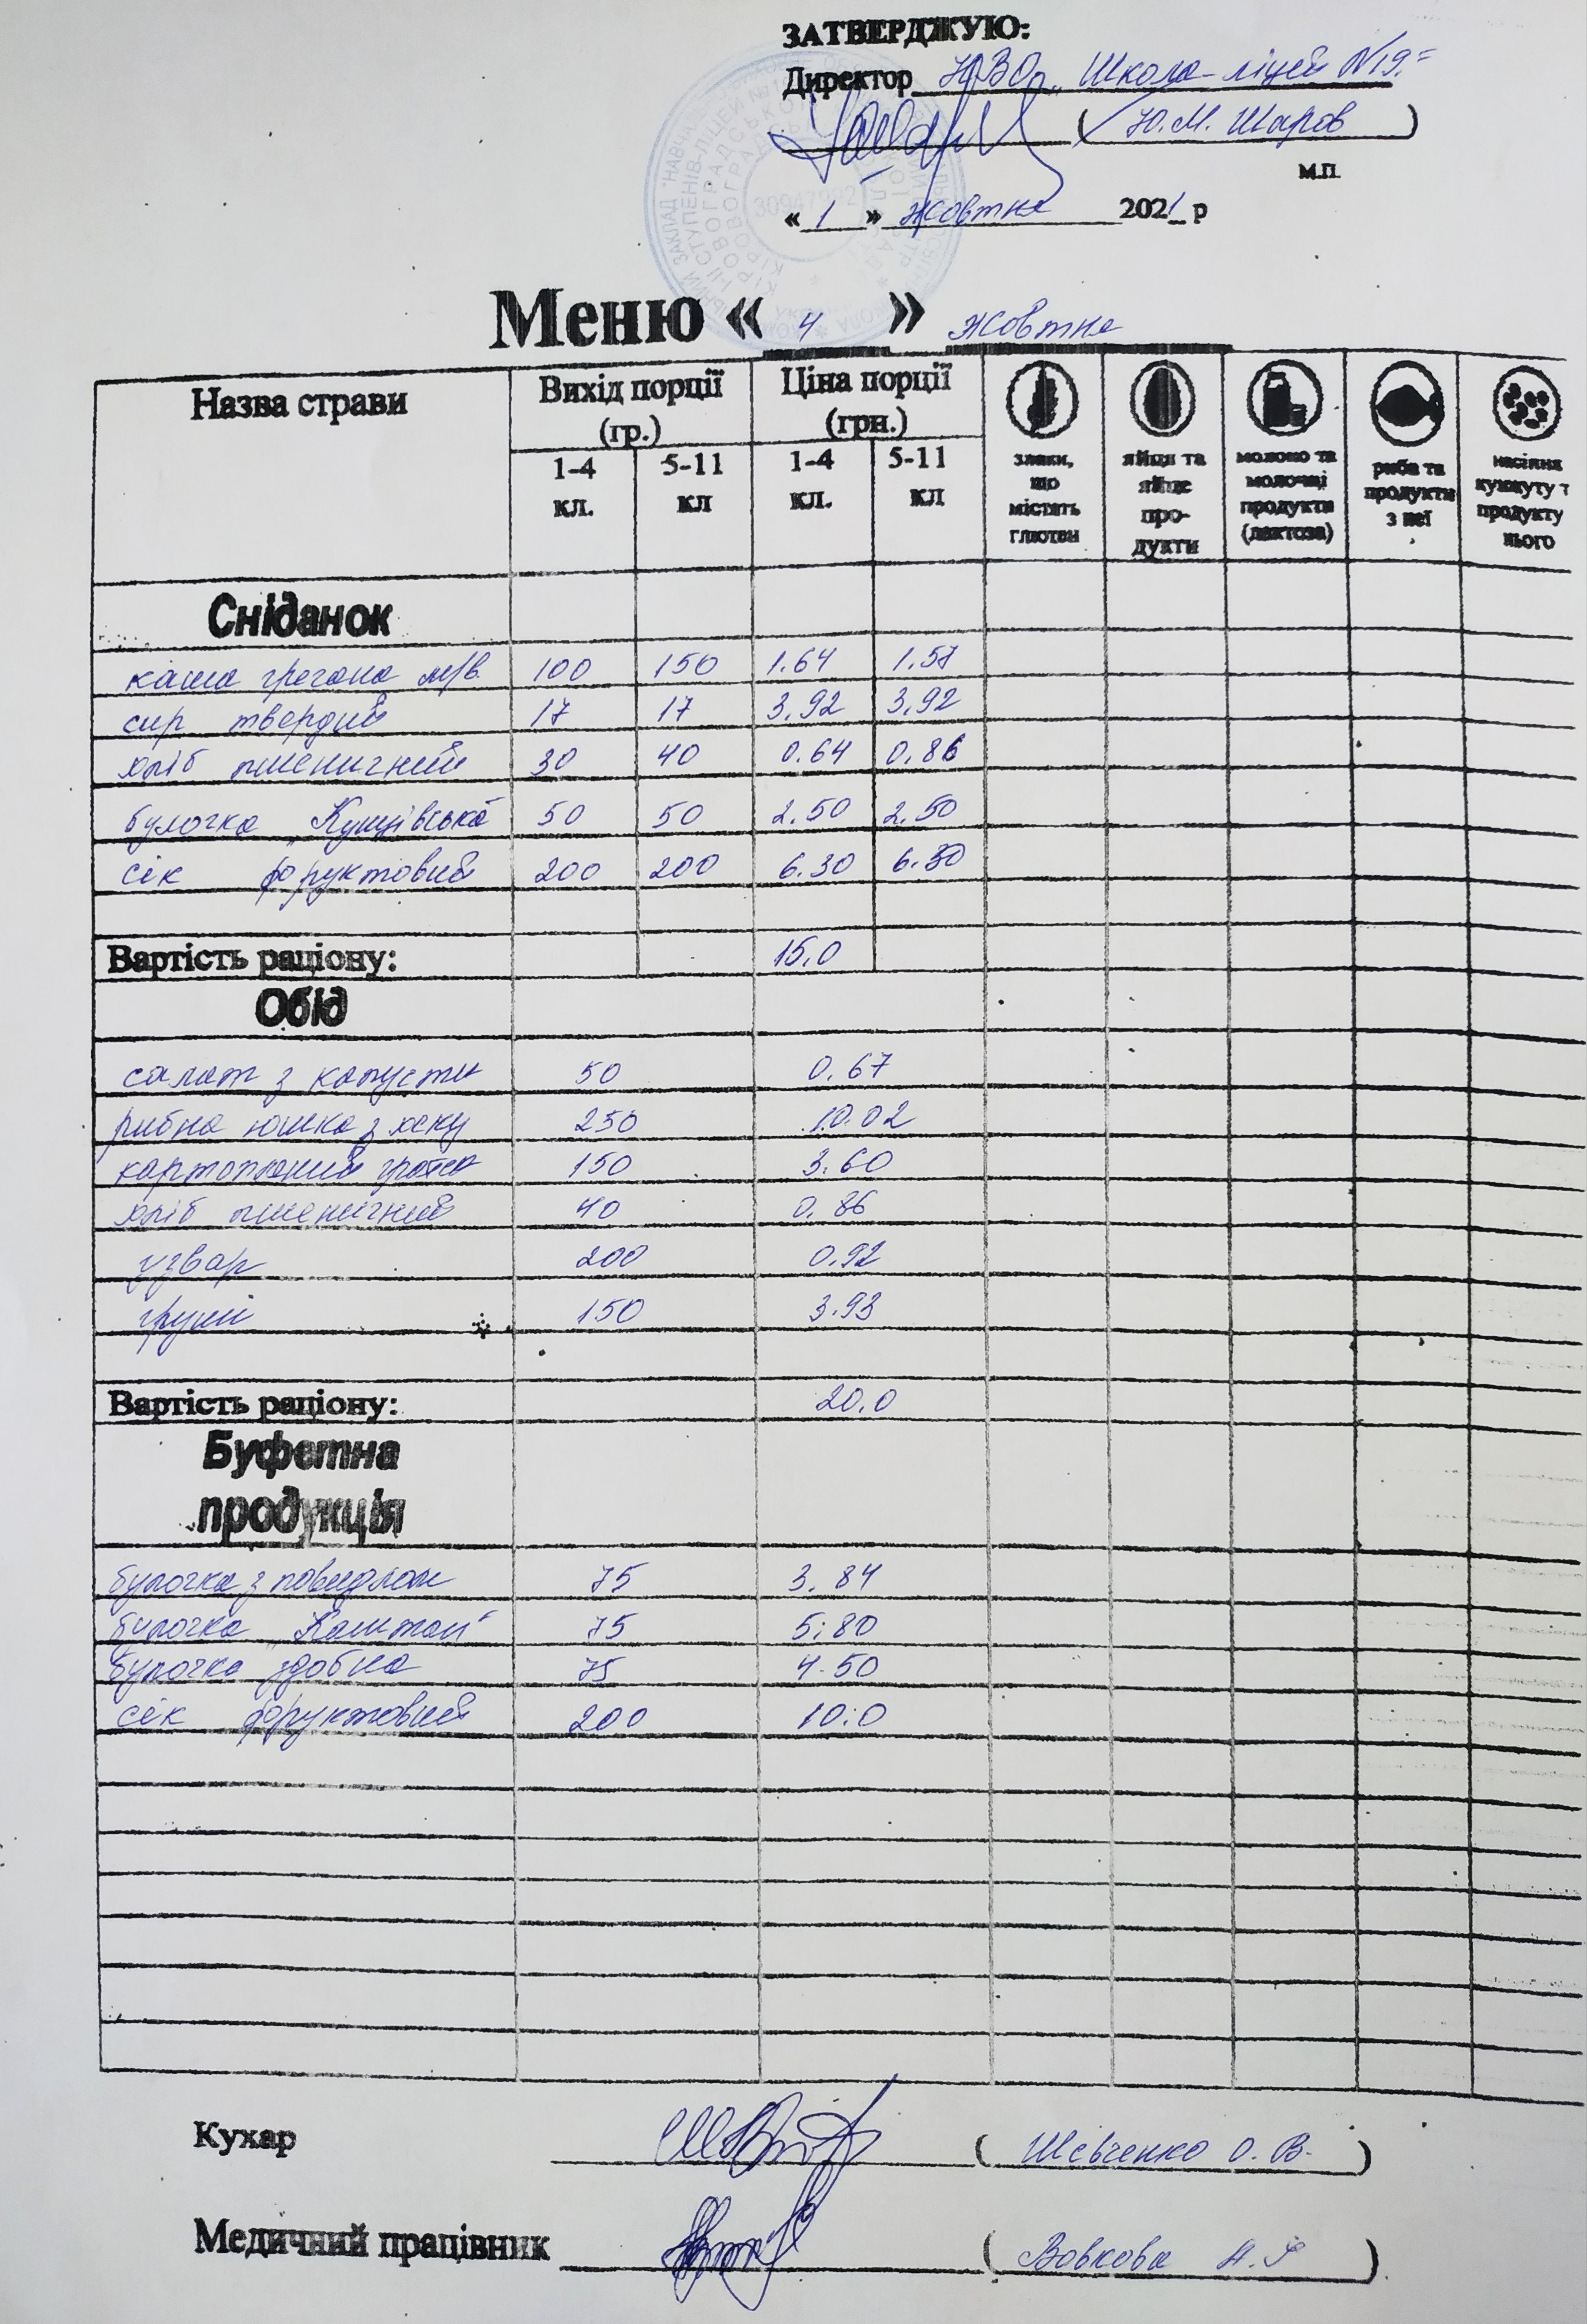 ЗАТВЕРДЖУЮ:
Директор НВО „Школа-ліцей №19"
( Ю.М. Шаров )
М.П.
« 1 » жовтня 2021 р
Меню « 4 » жовтня
Назва страви Вихід порції (гр.) Ціна порції (грн.)
1-4 кл. 5-11 кл 1-4 кл. 5-11 кл
злаки, що містять глютен
яйця та яйце про-дукти
молоко та молочні продукти (лактоза)
риба та продукти з неї
насіння кунжуту т продукту нього
Сніданок
каша гречана м/в. 100 150 1.64 1.57
сир твердий 17 17 3,92 3,92
хліб пшеничний 30 40 0.64 0,86
булочка „Кущівська" 50 50 2.50 2,50
сік фруктовий 200 200 6.30 6.30
Вартість раціону: 15,0
Обід
салат з капусти 50 0.67
рибна юшка з хеку 250 10.02
картопляний 150 3.60
хліб пшеничний 40 0,86
узвар 200 0.92
груші 150 3.93
Вартість раціону: 20,0
Буфетна
продукція
булочка з повидлом 75 3,84
булочка „Каштан" 75 5;80
булочка здобна 75 4.50
сік фруктовий 200 10:0
Кухар ( Шевченко О.В. )
Медичний працівник ( Вовкова )